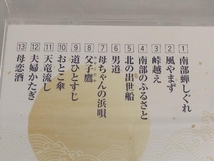 1 南部蝉しぐれ
2 風やまず
3 峠越え
4 南部のふるさと
5 北の出世船
6 男道
7 母ちゃんの浜唄
8 父子鷹
9 道ひとすじ
10 おとこ傘
11 天竜流し
12 夫婦かたぎ
13 母恋酒